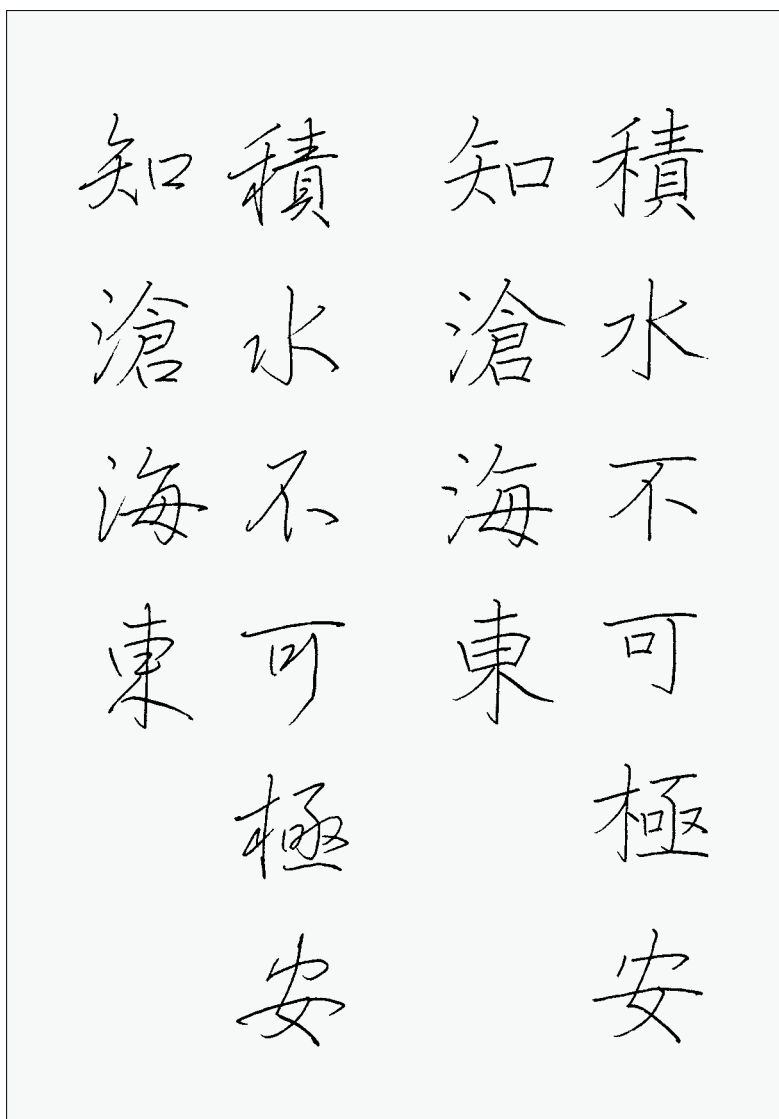 積水不可極安
知滄海東
積水不可極安
知滄海東